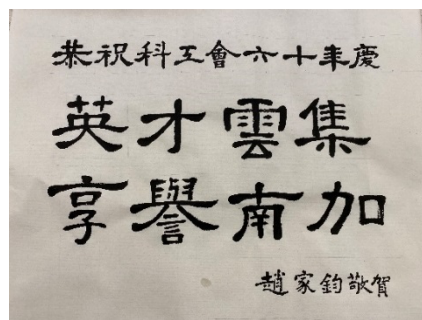 恭祝科工會六十年慶
英才雲集
享譽南加
趙家鈞敬賀